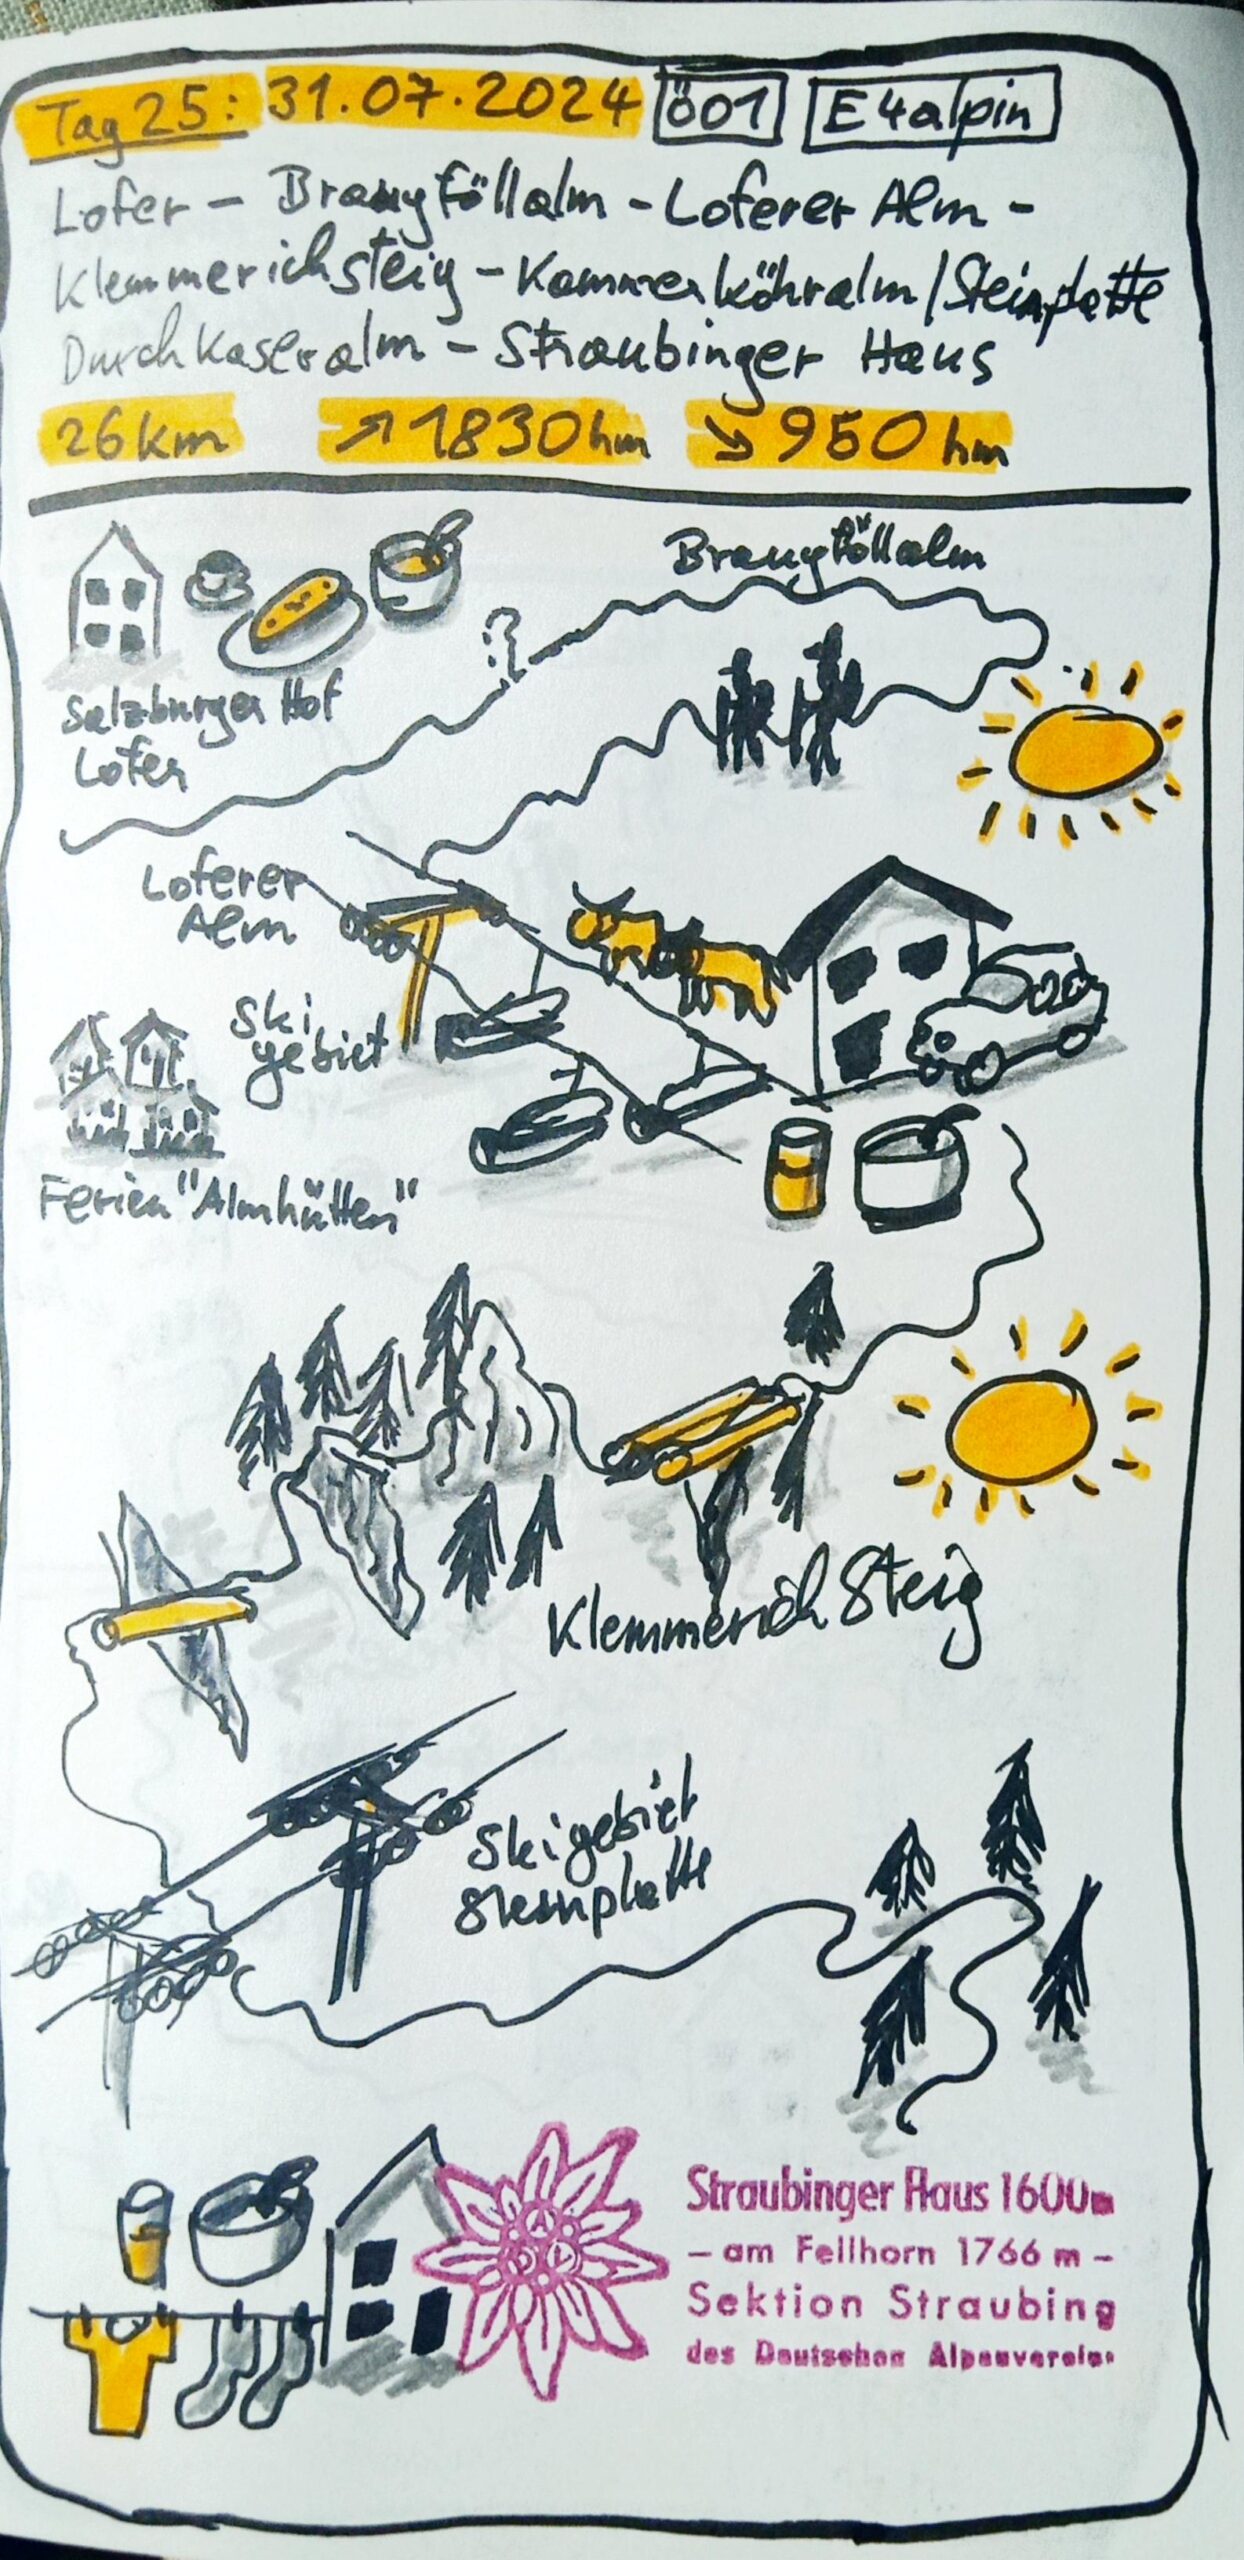 Tag 25: 31.07.2024 Ö01 E4alpin
Lofer – Braugföllalm – Loferer Alm –
Klemmerichsteig – Kammerköhralm / Steinplatte
Durchkaseralm – Straubinger Haus
26 km ↗ 1830 hm ↘ 950 hm
Braugföllalm
Salzburger Hof
Lofer
Loferer
Alm
Ski
gebiet
Ferien "Almhütten"
Klemmerich Steig
Skigebiet
Steinplatte
Straubinger Haus 1600m
– am Fellhorn 1766 m –
Sektion Straubing
des Deutschen Alpenvereins